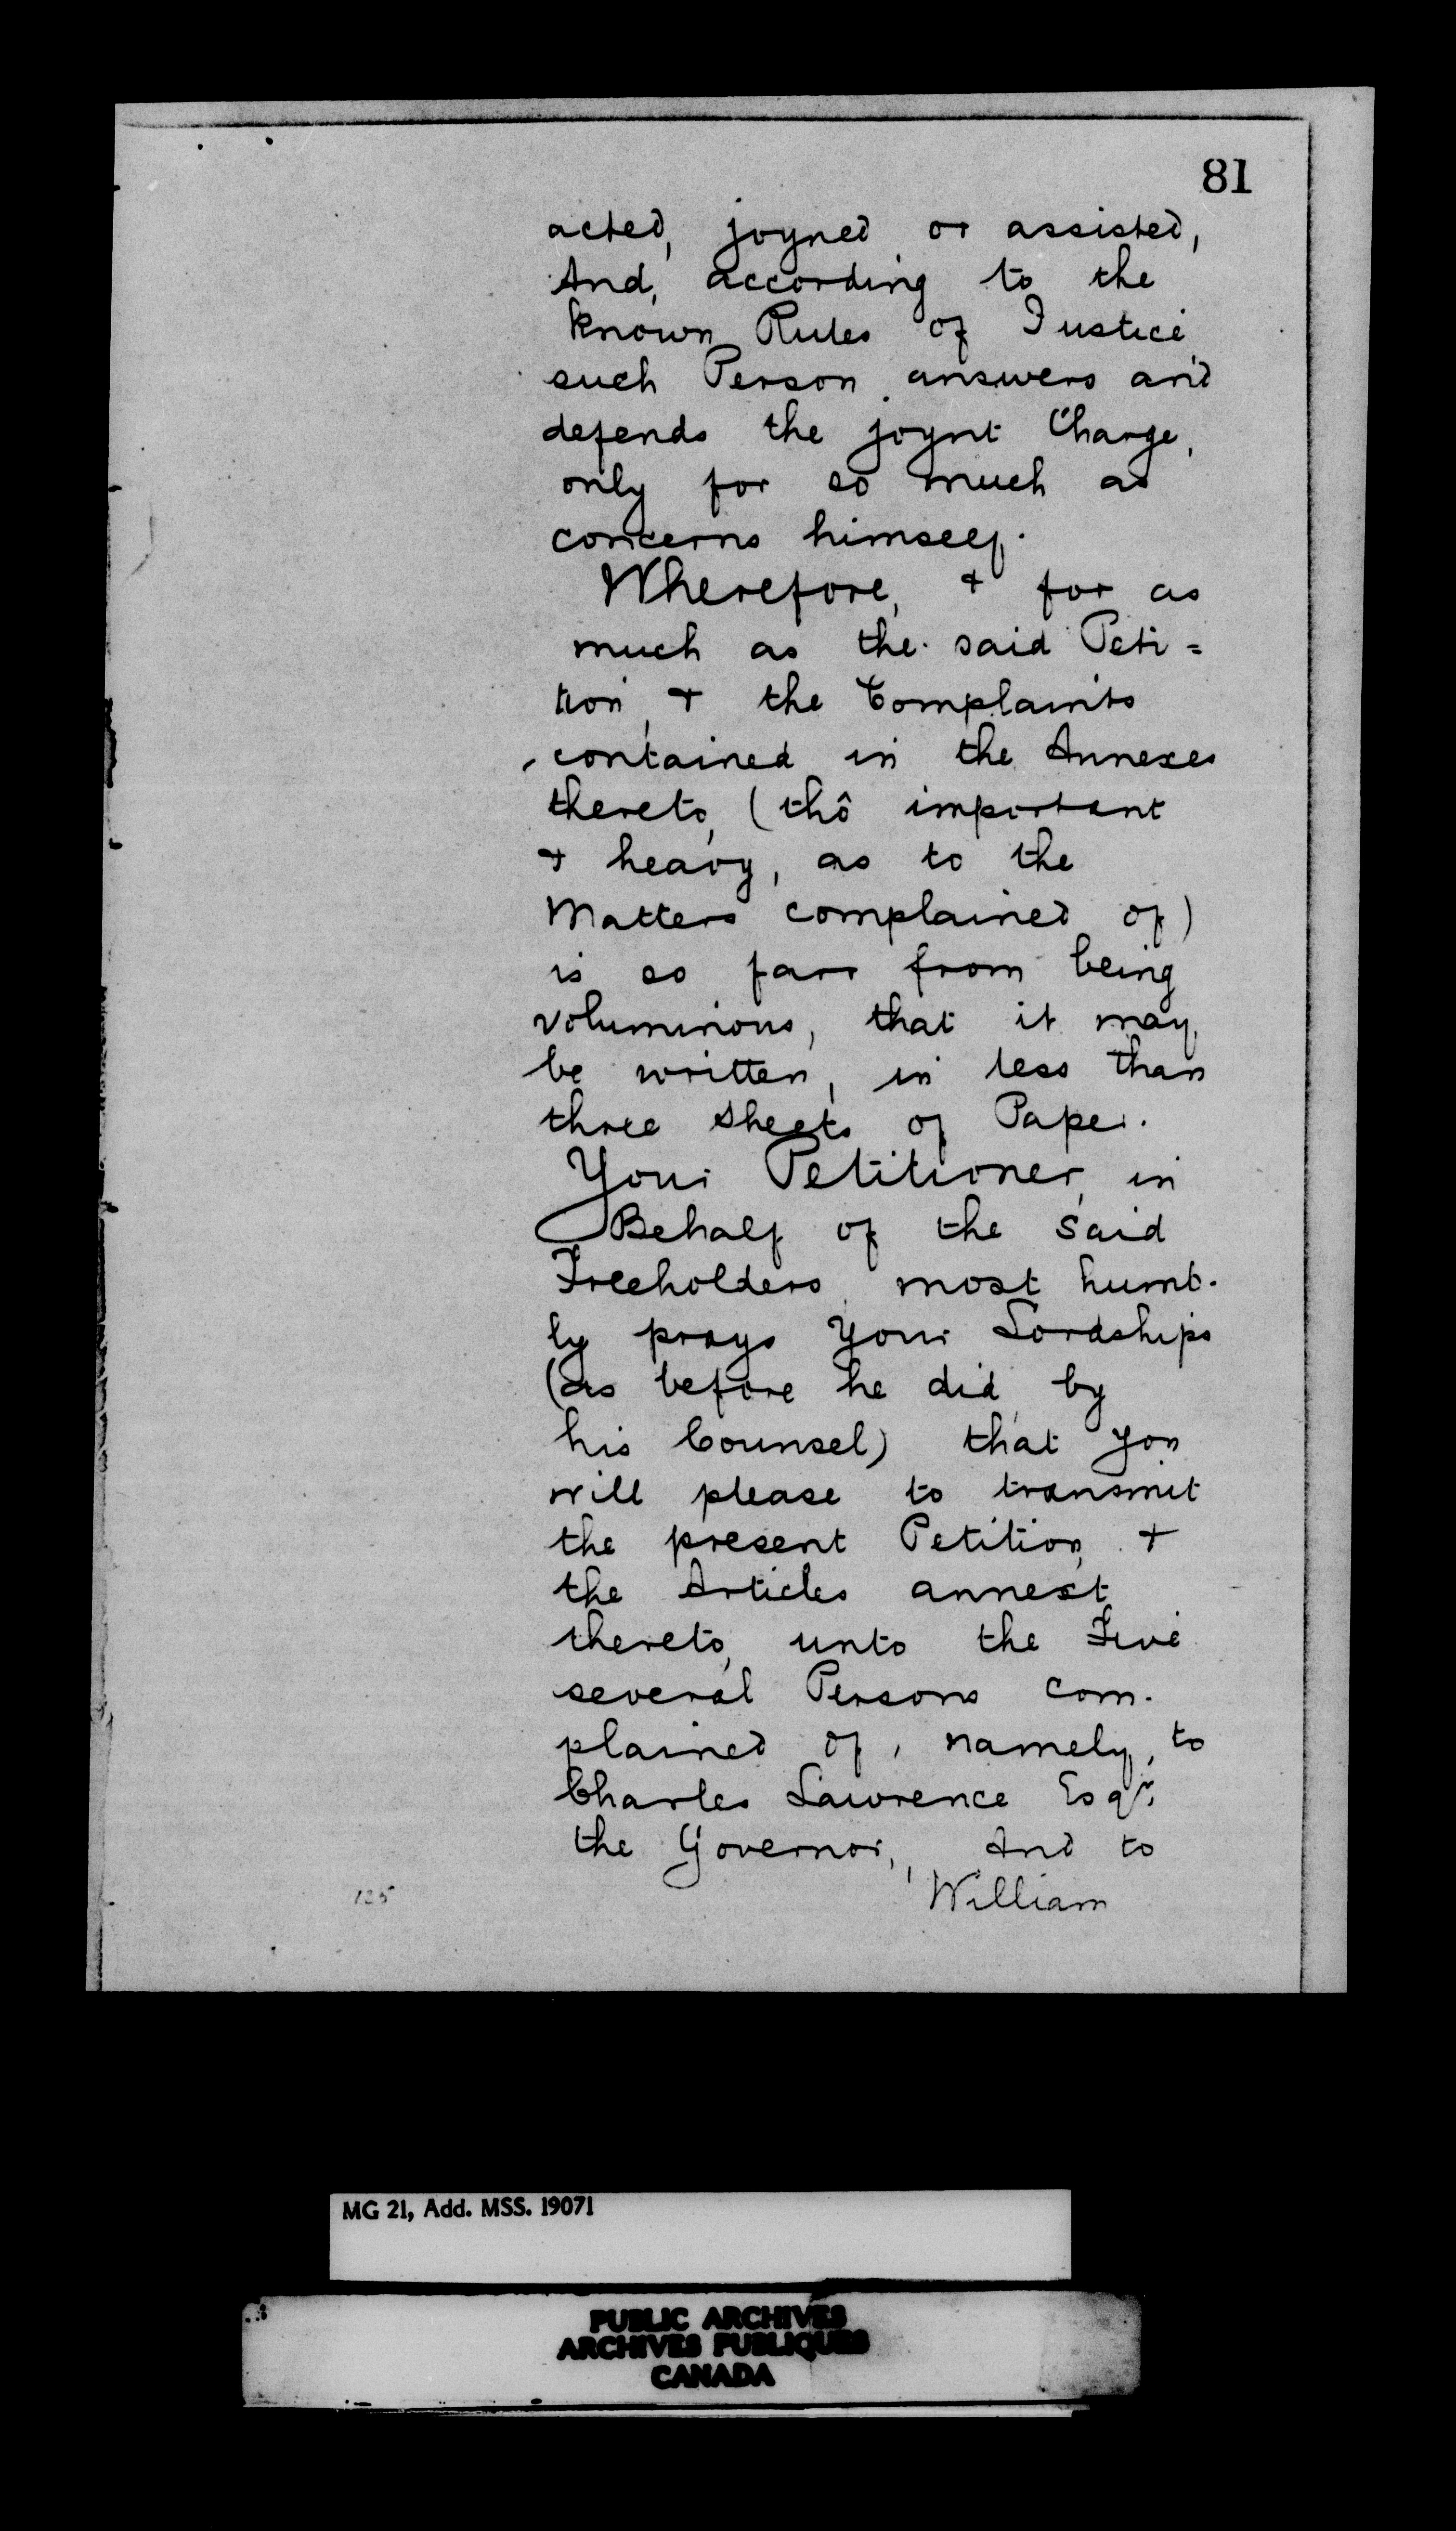 81
acted, joyned or assisted,
And, according to the
known Rules of Justice,
such Person answers and
defends the joynt Charge,
only for so much as
concerns himself.
Wherefore, & for as
much as the said Peti=
tion, & the Complaints
contained in the Annexes
thereto, (thô important
& heavy, as to the
Matters complained of)
is so farr from being
voluminous, that it may,
be written, in less than
three sheets of Paper.
Your Petitioner, in
Behalf of the said
Freeholders, most humb-
ly prays Your Lordships
(as before he did, by
his Counsel) that you
will please to transmit
the present Petition, &
the Articles annext
thereto, unto the Five
several Persons com-
plained of, namely, to
Charles Lawrence Esqr.
the Governor, And to
William
125
MG 21, Add. MSS. 19071
PUBLIC ARCHIVES
ARCHIVES PUBLIQUES
CANADA